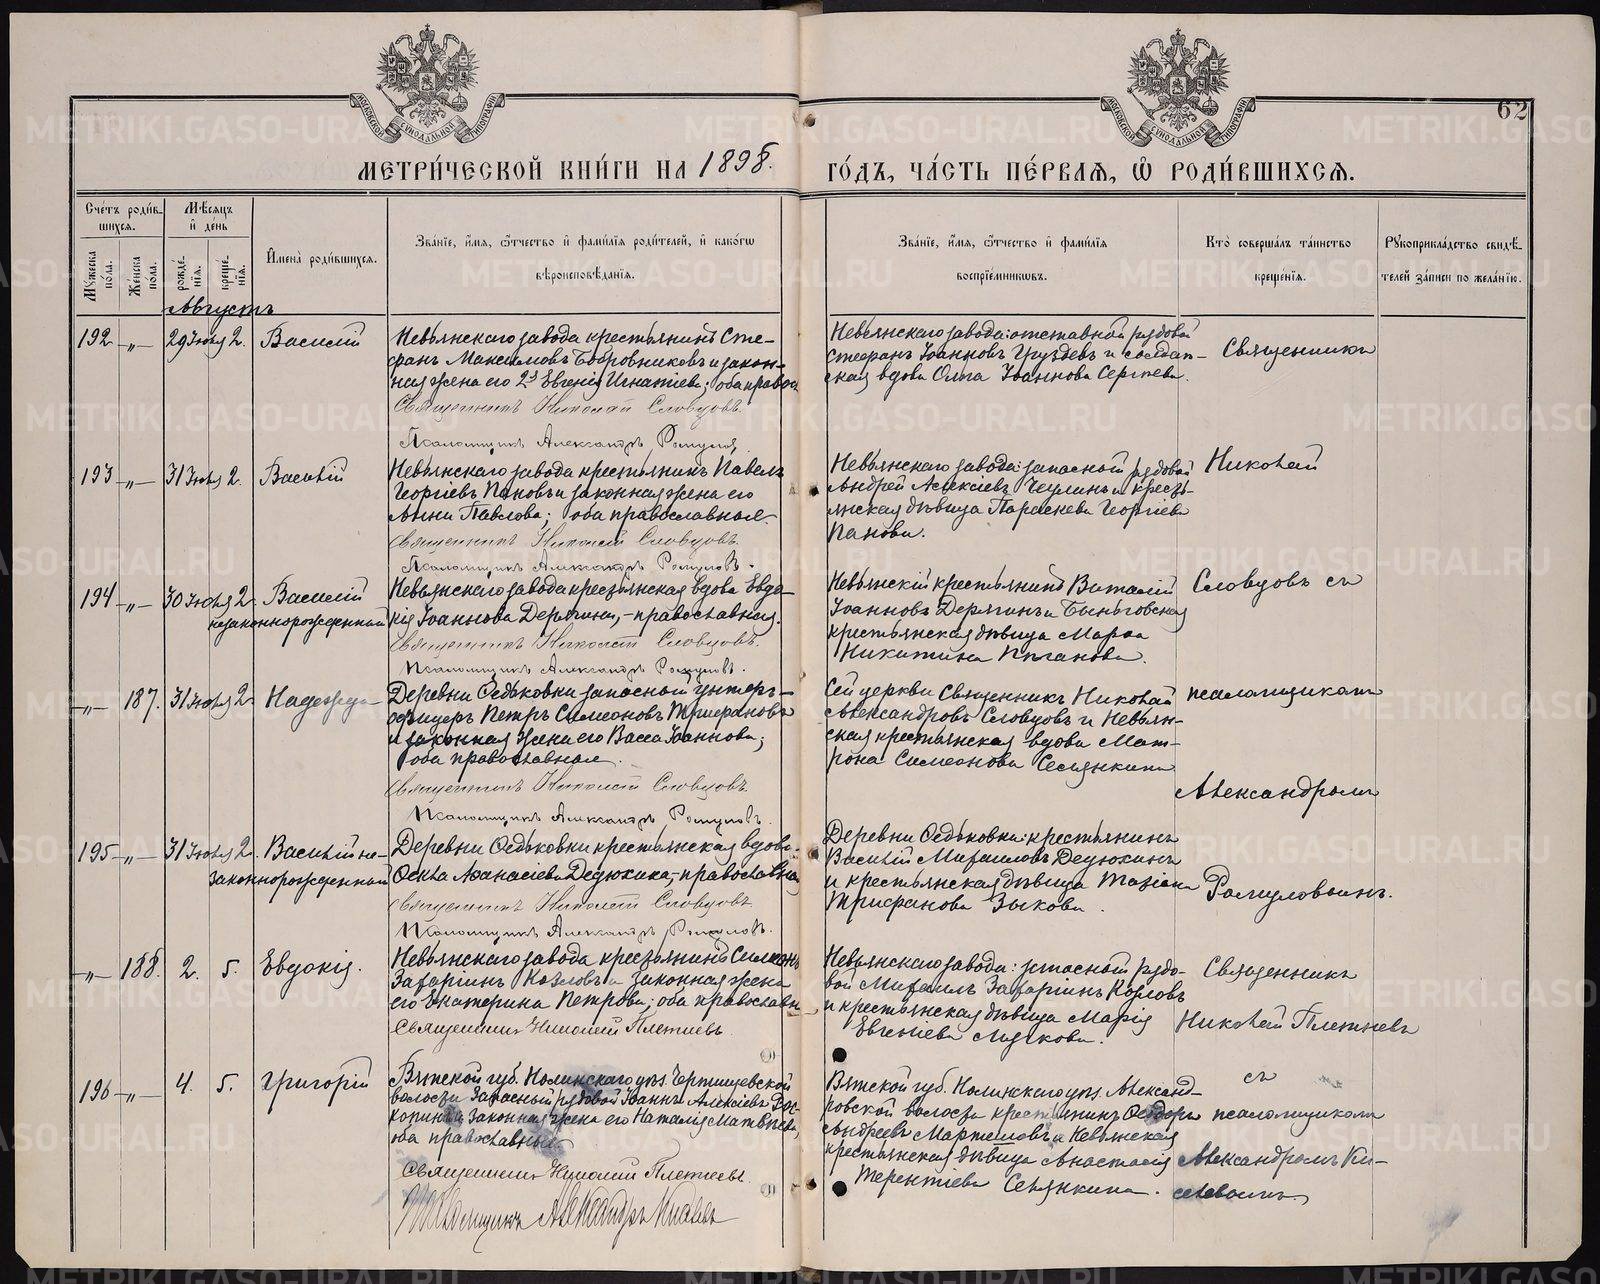 МОСКОВСКОЙ СѴНОДАЛЬНОЙ ТИПОГРАФІИ
МОСКОВСКОЙ СѴНОДАЛЬНОЙ ТИПОГРАФІИ
62
МЕТРИ́ЧЕСКОЙ КНИ́ГИ НА 1898. ГО́ДЪ, ЧА́СТЬ ПЕ́РВАѦ, Ѽ РОДИ́ВШИХСѦ.
Сче́тъ роди́в-
шихся.
Мѣ́сяцъ
и҆ де́нь
Му́жеска по́ла.
Же́нска по́ла.
рожде́нїѧ.
креще́нїѧ.
И҆мена̀ роди́вшихся.
Зва́нїе, и҆́мѧ, ѻ҆́тчество и҆ фами́лїѧ роди́телей, и҆ како́гѡ
вѣроисповѣ́данїѧ.
Зва́нїе, и҆́мѧ, ѻ҆́тчество и҆ фами́лїѧ
воспрїе́мниковъ.
Кто̀ соверша́лъ та́инство
креще́нїѧ.
Рꙋкоприкла́дство свидѣ́-
телей за́писи по жела́нїю.
Августъ
192 „ 29 Іюля 2. Василій
Невьянскаго завода крестьянинъ Сте-
фанъ Максимовъ Бобровниковъ и закон-
ная жена его 2я Евгенія Игнатіева; оба правос
Священникъ Николай Словцовъ.
Псаломщикъ Александръ Ромуловъ
Невьянскаго завода: отставной рядовой
Стефанъ Іоанновъ Груздевъ и солдат-
ская вдова Ольга Іоаннова Сергѣева.
Священникъ
193 „ 31 Іюля 2. Василій
Невьянскаго завода крестьянинъ Павелъ
Георгіевъ Пановъ и законная жена его
Анна Павлова; оба православные.
Священникъ Николай Словцовъ.
Псаломщикъ Александръ Ромуловъ.
Невьянскаго завода: запасной рядовой
Андрей Алексіевъ Чеулинъ и кресть-
янская дѣвица Параскева Георгіева
Панова.
Николай
194 „ 30 Іюля 2. Василій
незаконнорожденный
Невьянскаго завода крестьянская вдова Евдо-
кія Іоаннова Дерягина, - православная.
Священникъ Николай Словцовъ.
Псаломщикъ Александръ Ромуловъ.
Невьянскій крестьянинъ Виталій
Іоанновъ Дерягинъ и Быньговская
крестьянская дѣвица Марѳа
Никитина Пѣганова.
Словцовъ съ
„ 187. 31 Іюля 2. Надежда
Деревни Ѳедьковки запасной унтеръ-
офицеръ Петръ Симеоновъ Трифановъ
и законная жена его Васса Іоаннова;
оба православные.
Священникъ Николай Словцовъ.
Псаломщикъ Александръ Ромуловъ.
Сей церкви Священникъ Николай
Александровъ Словцовъ и Невьян-
ская крестьянская вдова Мат-
рона Симеонова Семянкина
псаломщикомъ
Александромъ
195 „ 31 Іюля 2. Василій не-
законнорожденный
Деревни Ѳедьковки крестьянская вдова
Ѳекла Аѳанасіева Дедюхина, православная
Священникъ Николай Словцовъ.
Псаломщикъ Александръ Ромуловъ.
Деревни Ѳедьковки: крестьянинъ
Василій Михаиловъ Дедюхинъ
и крестьянская дѣвица Татіана
Трифанова Зыкова.
Ромуловымъ.
„ 188. 2. 5. Евдокія.
Невьянскаго завода крестьянинъ Симеонъ
Захаріинъ Козловъ и законная жена
его Екатерина Петрова; оба православн
Священникъ Николай Плетневъ.
Невьянскаго завода: запасной рядо-
вой Михаилъ Захаріинъ Козловъ
и крестьянская дѣвица Марія
Евгеніева
Священникъ
Николай Плетневъ
196 „ 4. 5. Григорій
Вятской губ. Нолинскаго уѣз.
волости Запасный рядовой Іоаннъ Алексіевъ
и законная жена его Наталія Матвѣева,
оба православные
Священникъ Николай Плетневъ.
Псаломщикъ Александръ Киселевъ
Вятской губ. Нолинскаго уѣз. Александ-
ровской волости крестьянинъ Ѳеодоръ
Андреевъ Мартешовъ и Невьянская
крестьянская дѣвица Анастасія
Терентіева Семянкина.
съ
псаломщикомъ
Александромъ Ки-
селевымъ
METRIKI.GASO-URAL.RU